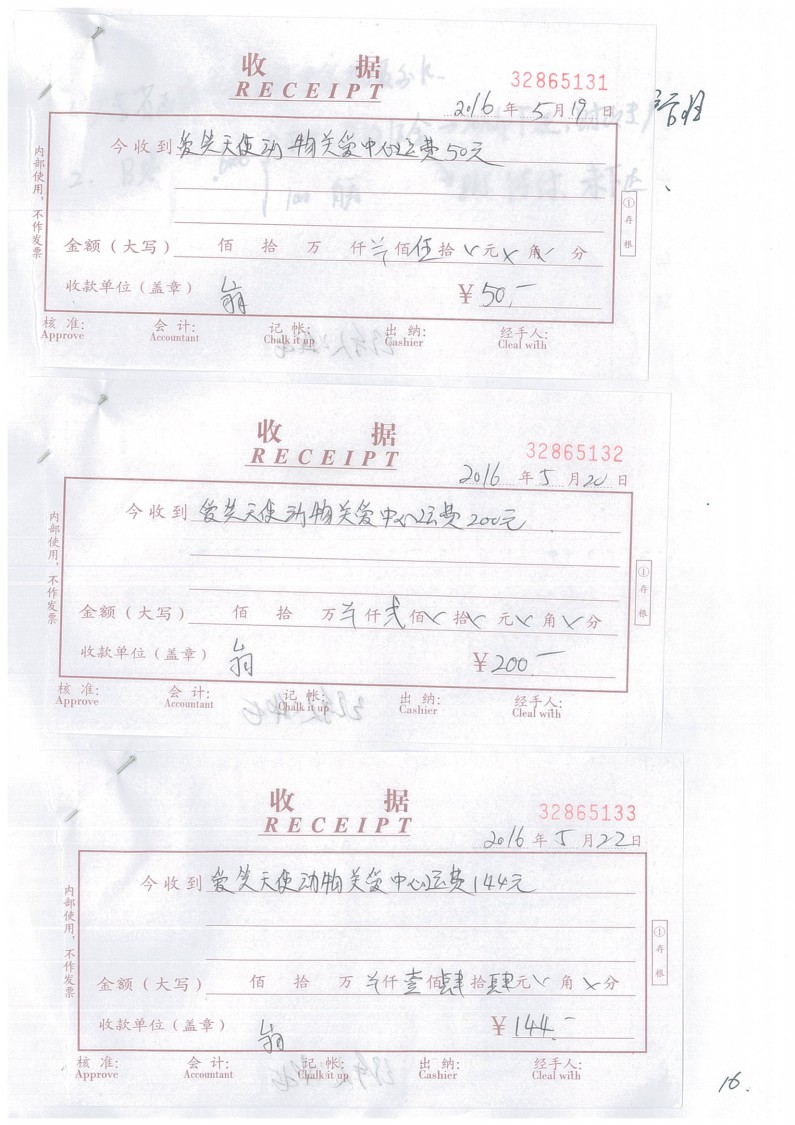 收 据
RECEIPT
32865131
2016 年 5 月 19 日
今收到 爱笑天使动物关爱中心运费50元
内部使用，不作发票
①存根
金额（大写） 佰 拾 万 仟 佰 伍 拾 元 角 分
收款单位（盖章） ¥ 50.—
核 准: 会 计: 记 帐: 出 纳: 经手人:
Approve Accountant Chalk it up Cashier Cleal with
收 据
RECEIPT
32865132
2016 年 5 月 20 日
今收到 爱笑天使动物关爱中心运费200元
内部使用，不作发票
①存根
金额（大写） 佰 拾 万 仟 贰 佰 拾 元 角 分
收款单位（盖章） ¥ 200.—
核 准: 会 计: 记 帐: 出 纳: 经手人:
Approve Accountant Chalk it up Cashier Cleal with
收 据
RECEIPT
32865133
2016 年 5 月 22 日
今收到 爱笑天使动物关爱中心运费144元
内部使用，不作发票
①存根
金额（大写） 佰 拾 万 仟 壹 佰 肆 拾 肆 元 角 分
收款单位（盖章） ¥ 144.—
核 准: 会 计: 记 帐: 出 纳: 经手人:
Approve Accountant Chalk it up Cashier Cleal with
16.